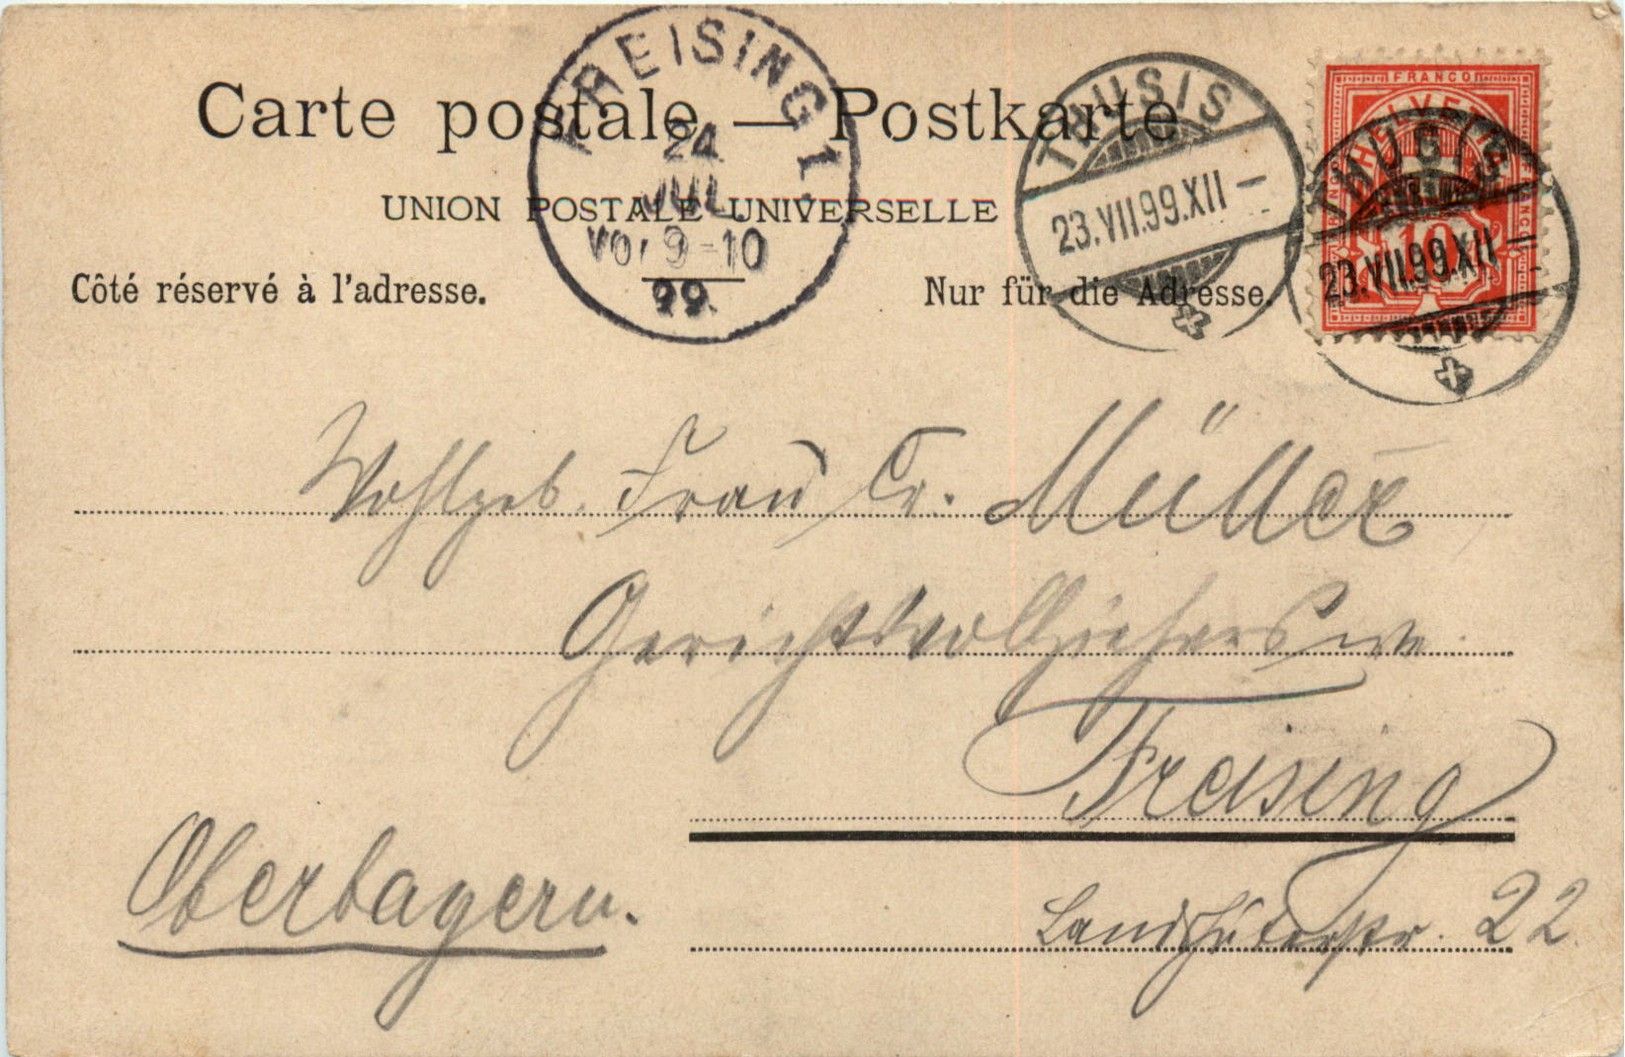 Carte postale — Postkarte
UNION POSTALE UNIVERSELLE
Côté réservé à l'adresse.
Nur für die Adresse.
FREISING 1.
24
JUL.
Vor 9-10
99.
THUSIS
23.VII.99.XII—
FRANCO
HELVETIA
10
THUSIS
23.VII.99.XII—
Wohlgeb. Frau Cr. Müller
Gerichtsvollziehers we.
Freising
Oberbayern.
Landshuterstr. 22